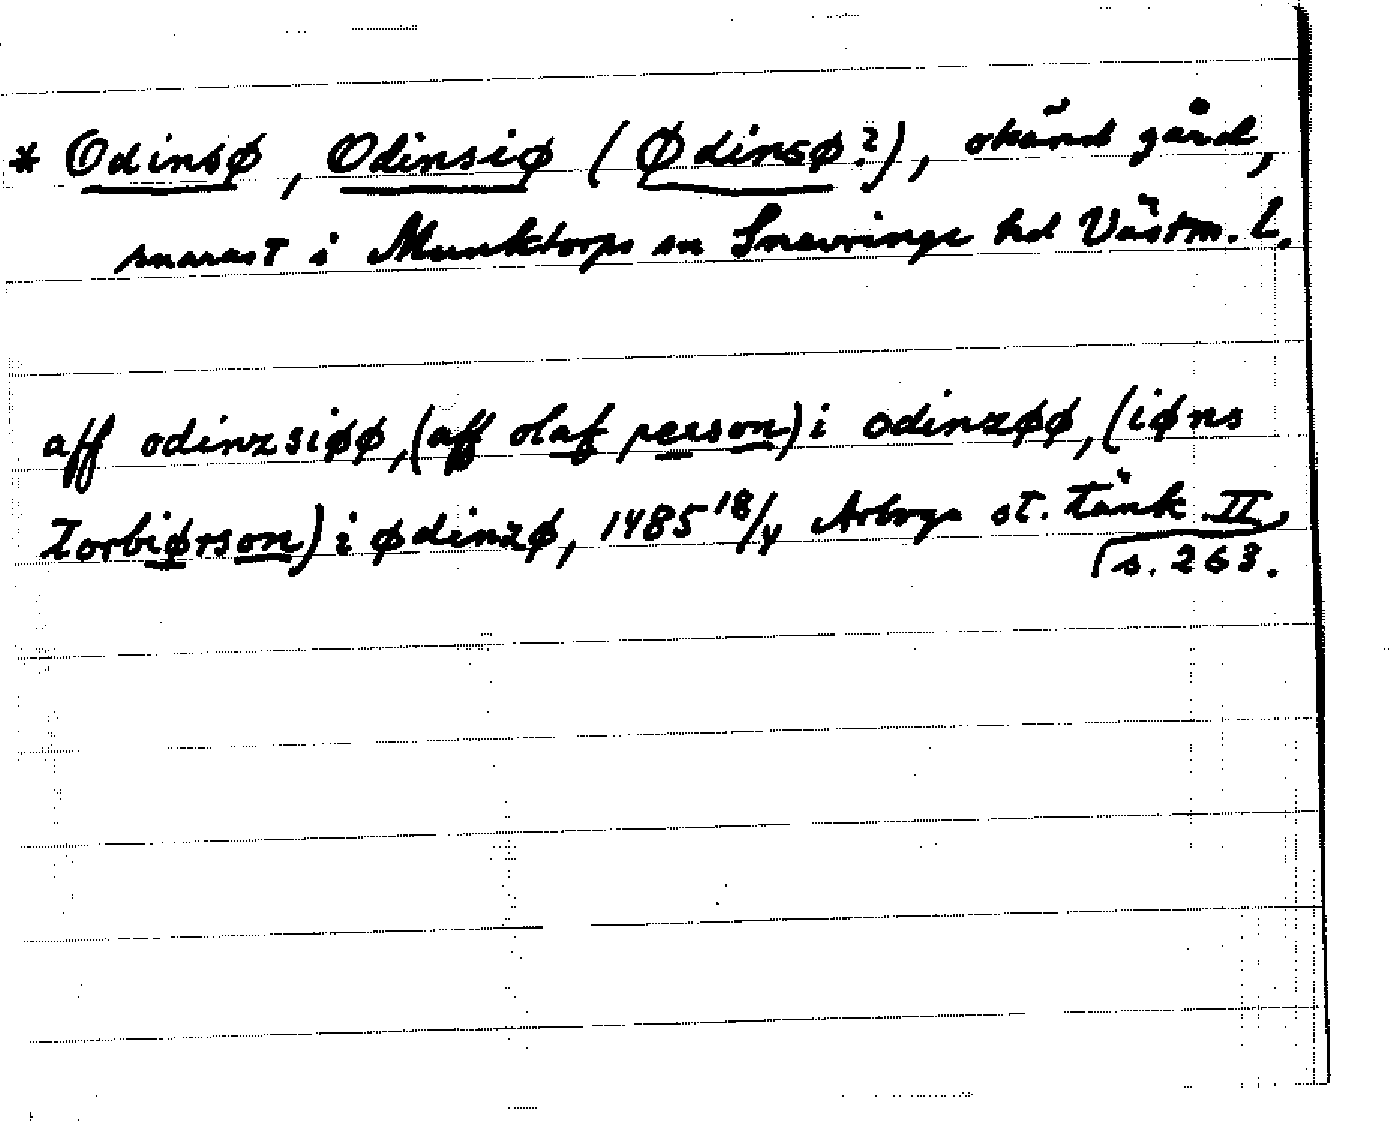 * Odinsø, Odinsiø (Ødinsø?), okänd gård,
snarast i Munktorps sn Snevringe hd Västm. l.
aff odinzsiøø, (aff olaf person) i odinzøø, (iøns
Torbiørson) i ødinzø, 1485 18/4 Arboga st. tänk. II
s. 263.